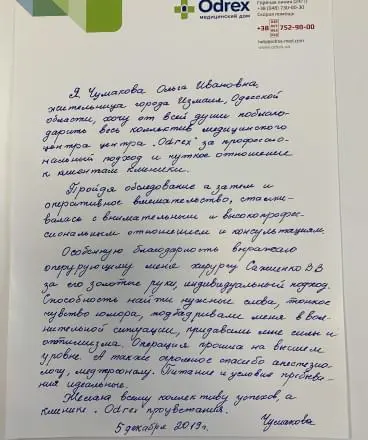 Odrex
медицинский дом
Горячая линия (24/7)
+38 (048) 730-00-30
Скорая помощь
+38 752-90-00
help@odrex-med.com
www.odrex.ua
Я, Чумакова Ольга Ивановна,
жительница города Измаил, Одесской
области, хочу от всей души поблаго-
дарить весь коллектив медицинского
центра центра „Odrex" за профессио-
нальный подход и чуткое отношение
к клиентам клиники.
Пройдя обследование а затем и
оперативное вмешательство, сталки-
валась с внимательным и высокопрофес-
сиональным отношением и консультациям.
Особенную благодарность выражаю
оперирующему меня хирургу Сажиенко В В
за его золотые руки, индивидуальный подход.
Способность найти нужные слова, тонкое
чувство юмора, подбадривали меня в вол-
нительной ситуации, придавали мне силы и
оптимизма. Операция прошла на высшем
уровне. А также огромное спасибо анестезио-
логу, медперсоналу. Питание и условия пребыва-
ния идеальные.
Желаю всему коллективу успехов, а
клинике „Odrex" процветания.
5 декабря 2019г. Чумакова